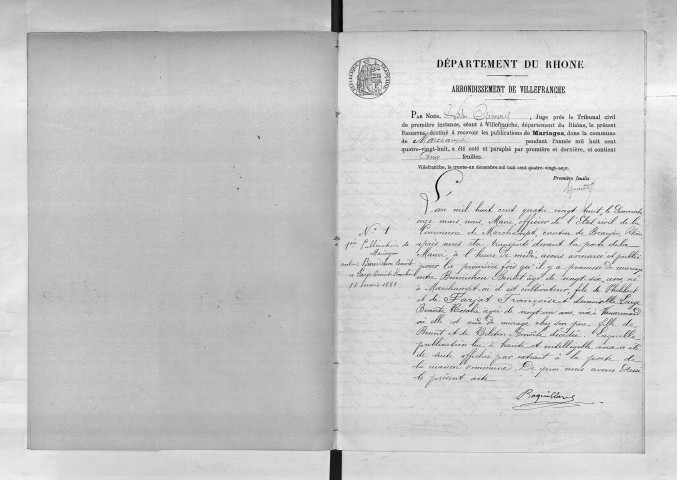 DÉPARTEMENT DU RHONE
ARRONDISSEMENT DE VILLEFRANCHE
PAR NOUS, , Juge près le Tribunal civil
de première instance, séant à Villefranche, département du Rhône, le présent
REGISTRE destiné à recevoir les publications de Mariages, dans la commune
de Marchampt pendant l'année mil huit cent
quatre-vingt-huit, a été coté et paraphé par première et dernière, et contient
Cinq feuilles.
Villefranche, le trente-un décembre mil huit cent quatre-vingt-sept.
Première feuille
L'an mil huit cent quatre vingt huit, le Dimanche
onze mars nous, Maire officier de l'Etat civil de la
Commune de Marchampt, canton de Beaujeu Rhône
après nous être transporté devant la porte de la
Mairie, à l'heure de midi, avons annoncé et publié
pour la première fois qu'il y a promesse de mariage
entre Benoît âgé de vingt six ans né
à Marchampt où il est cultivateur, fils de Philibert
et de Farjat Françoise et demoiselle Large
Benoîte âgée de vingt un ans, née à
où elle est chez son père, fille de
Benoît et de Benoîte décédée. Laquelle
publication lue à haute et intelligible voix a été
de suite affichée par extrait à la porte de
la maison commune. De quoi nous avons Dressé
le présent acte
N° 1
1ère Publication de
Mariage
entre Benoît
et Large
11 mars 1888